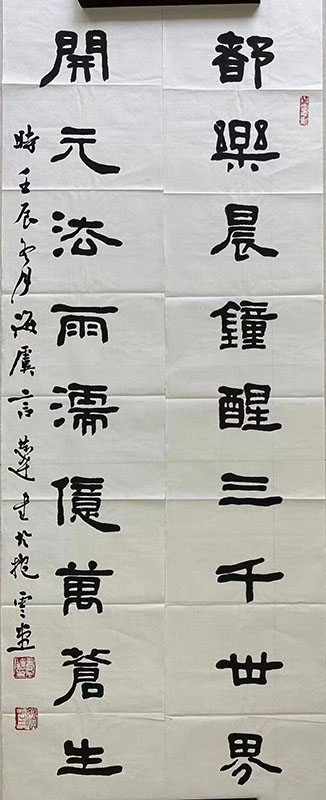 都樂晨鐘醒三千世界
開元法雨濡億萬蒼生
時壬辰冬月海虞言恭達書於抱雲堂